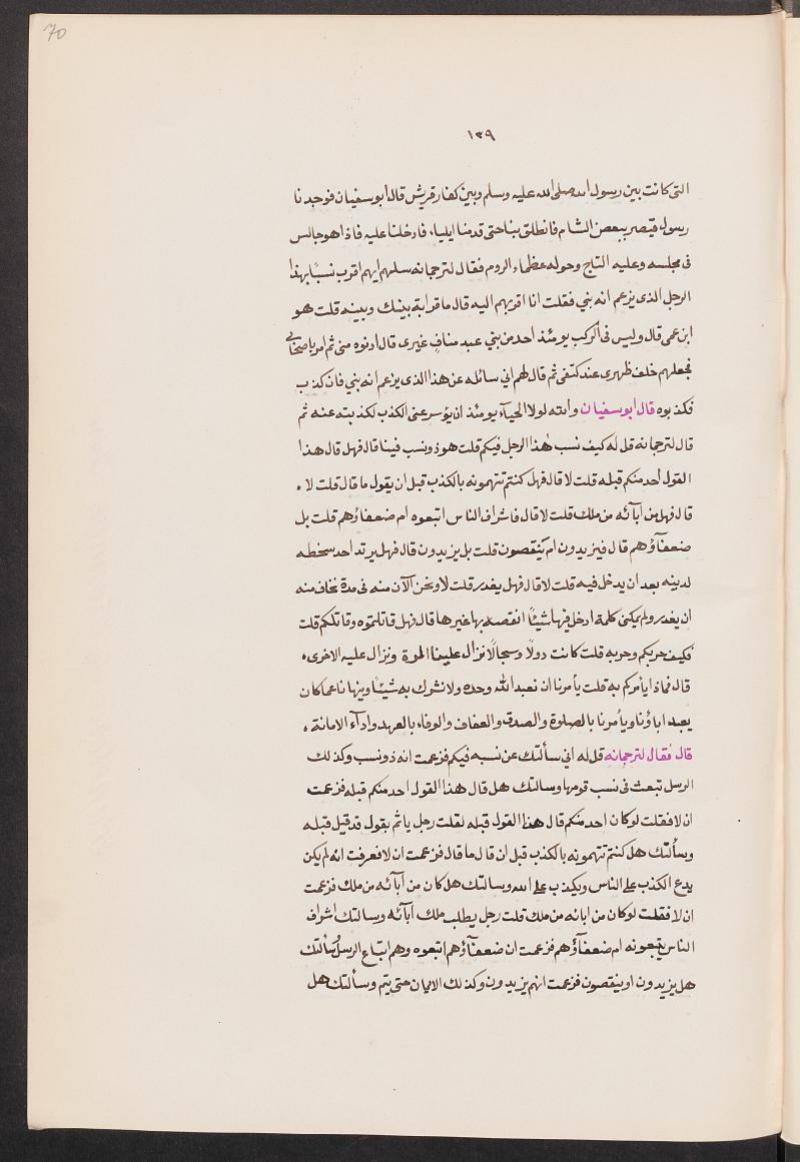 70
١٣٩
التى كانت بين رسول الله صلى الله عليه وسلم وبين كفار قريش قال ابو سفيان فوجدنا
رسول قيصر ببعض الشام فانطلق بنا حتى قدمنا ايلياء فادخلنا عليه فاذا هو جالس
فى مجلسه وعليه التاج وحوله عظماء الروم فقال لترجمانه سلهم ايهم اقرب نسبًا بهذا
الرجل الذى يزعم انه نبي فقلت انا اقربهم اليه قال ما قرابة بينك وبينه قلت هو
ابن عمى قال وليس فى الركب يومئذ احد من بني عبد مناف غيرى قال ادنوه منى ثم امر باصحابي
فجعلهم خلف ظهرى عند كتفى ثم قال لهم اني سائله عن هذا الذى يزعم انه نبي فان كذب
فكذبوه قال ابو سفيان والله لولا الحياء يومئذ ان يؤسر عنى الكذب لكذبته عنه ثم
قال لترجمانه قل له كيف نسب هذا الرجل فيكم قلت هو ذو نسب فينا قال فهل قال هذا
القول أحد منكم قبله قلت لا قال فهل كنتم تتهمونه بالكذب قبل ان يقول ما قال قلت لا ،
قال فهل من آبآئه من ملك قلت لا قال فاشراف الناس اتبعوه ام ضعفاؤهم قلت بل
ضعفآؤهم قال فيزيدون ام ينقصون قلت بل يزيدون قال فهل يرتد احد سخطه
لدينه بعد ان يدخل فيه قلت لا قال فهل يغدر قلت لا ونحن الآن منه فى مدة نخاف منه
ان يغدر ولم يمكنى كلمة ادخل فيها شيئًا انقصه بها غيرها قال فهل قاتلتموه وقاتلكم قلت
فكيف حربكم وحربه قلت كانت دولًا وسجالًا نزال علينا المرة ونزال عليه الاخرى ،
قال فماذا يأمركم به قلت يأمرنا ان نعبد الله وحده ولا نشرك به شيئًا وينهانا عما كان
يعبد اباؤنا ويأمرنا بالصلوة والصدق والعفاف والوفاء بالعهد وادآء الامانة ،
قال فقال لترجمانه قل له اني سألتك عن نسبه فيكم فزعمت انه ذو نسب وكذلك
الرسل تبعث فى نسب قومها وسالتك هل قال هذا القول احد منكم قبله فزعمت
ان لا فقلت لو كان احد منكم قال هذا القول قبله لقلت رجل ياثم بقول قد قيل قبله
وسألتك هل كنتم تتهمونه بالكذب قبل ان قال ما قال فزعمت ان لا فعرفت انه لم يكن
يدع الكذب على الناس ويكذب على الله وسالتك هل كان من آبآئه من ملك فزعمت
ان لا فقلت لو كان من ابائه من ملك قلت رجل يطلب ملك آبآئه وسالتك اشراف
الناس يتبعونه ام ضعفآؤهم فزعمت ان ضعفآؤهم اتبعوه وهم اتباع الرسل وسألتك
هل يزيدون او ينقصون فزعمت انهم يزيدون وكذلك الايمان حتى يتم وسألتك هل